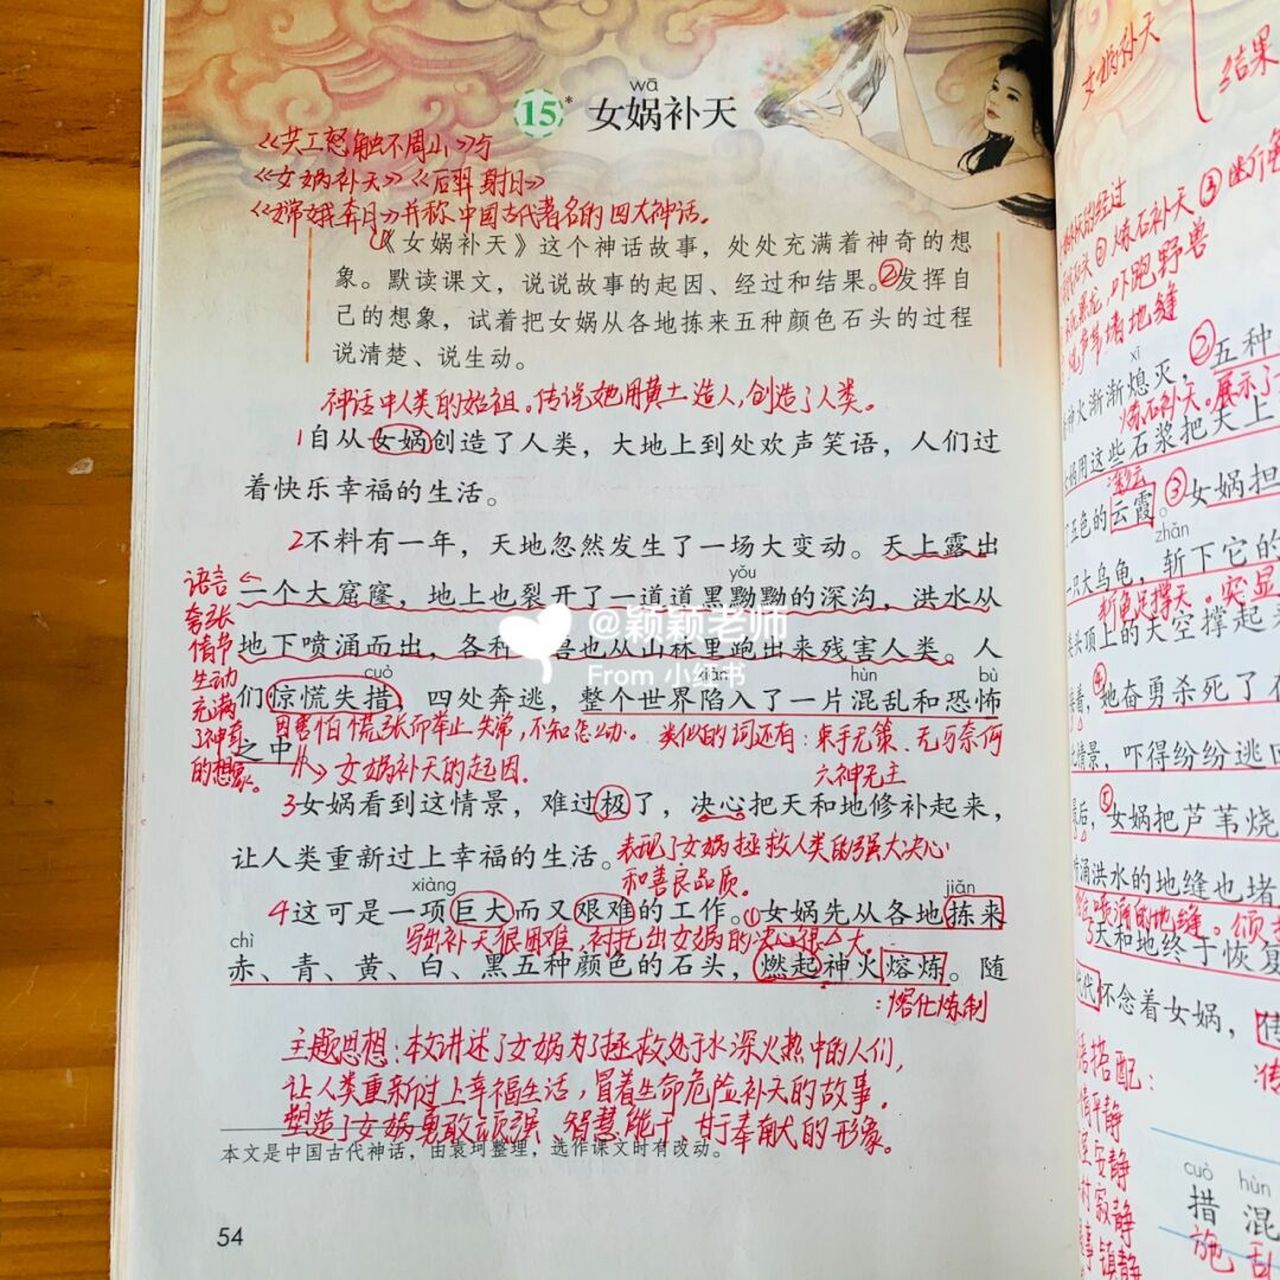 wā
15* 女娲补天
《共工怒触不周山》与
《女娲补天》《后羿射日》
《嫦娥奔月》并称中国古代著名的四大神话。
①《女娲补天》这个神话故事，处处充满着神奇的想
象。默读课文，说说故事的起因、经过和结果。②发挥自
己的想象，试着把女娲从各地拣来五种颜色石头的过程
说清楚、说生动。
神话中人类的始祖。传说她用黄土造人，创造了人类。
1自从女娲创造了人类，大地上到处欢声笑语，人们过
着快乐幸福的生活。
2不料有一年，天地忽然发生了一场大变动。天上露出
yǒu
一个大窟窿，地上也裂开了一道道黑黝黝的深沟，洪水从
地下喷涌而出，各种 兽也从山林里跑出来残害人类。人
cuò xiàn hùn bù
们惊慌失措，四处奔逃，整个世界陷入了一片混乱和恐怖
因害怕慌张而举止失常，不知怎么办。类似的词还有：束手无策、无可奈何
六神无主
之中
语言
夸张
情节
生动
充满
了神奇
的想象。
女娲补天的起因.
3女娲看到这情景，难过极了，决心把天和地修补起来，
让人类重新过上幸福的生活。
表现了女娲拯救人类的强大决心
和善良品质。
xiàng jiǎn
4这可是一项巨大而又艰难的工作。①女娲先从各地拣来
写出补天很困难，衬托出女娲的决心很大。
chì
赤、青、黄、白、黑五种颜色的石头，燃起神火熔炼。随
：熔化炼制
主题思想：本文讲述了女娲为了拯救处于水深火热中的人们，
让人类重新过上幸福生活，冒着生命危险补天的故事.
塑造了女娲勇敢顽强、智慧能干、甘于奉献的形象。
本文是中国古代神话，由袁珂整理，选作课文时有改动。
54
@颖颖老师
From 小红书
女娲补天
结果
的经过
②炼石补天 ③
吓跑野兽
堵地缝
xī
神火渐渐熄灭，②五种
炼石补天。展示了
用这些石浆把天上
五色的云霞。③女娲担
zhǎn
只大乌龟，斩下它的
斩龟足撑天。突显
类头顶上的天空撑起
④她奋勇杀死了
情景，吓得纷纷逃回
后，⑤女娲把芦苇烧
涌洪水的地缝也堵
喷涌的地缝。
5天和地终于恢复
代代怀念着女娲，
搭配：
平静
安静
寂静
镇静
cuò hùn
措 混
施 乱